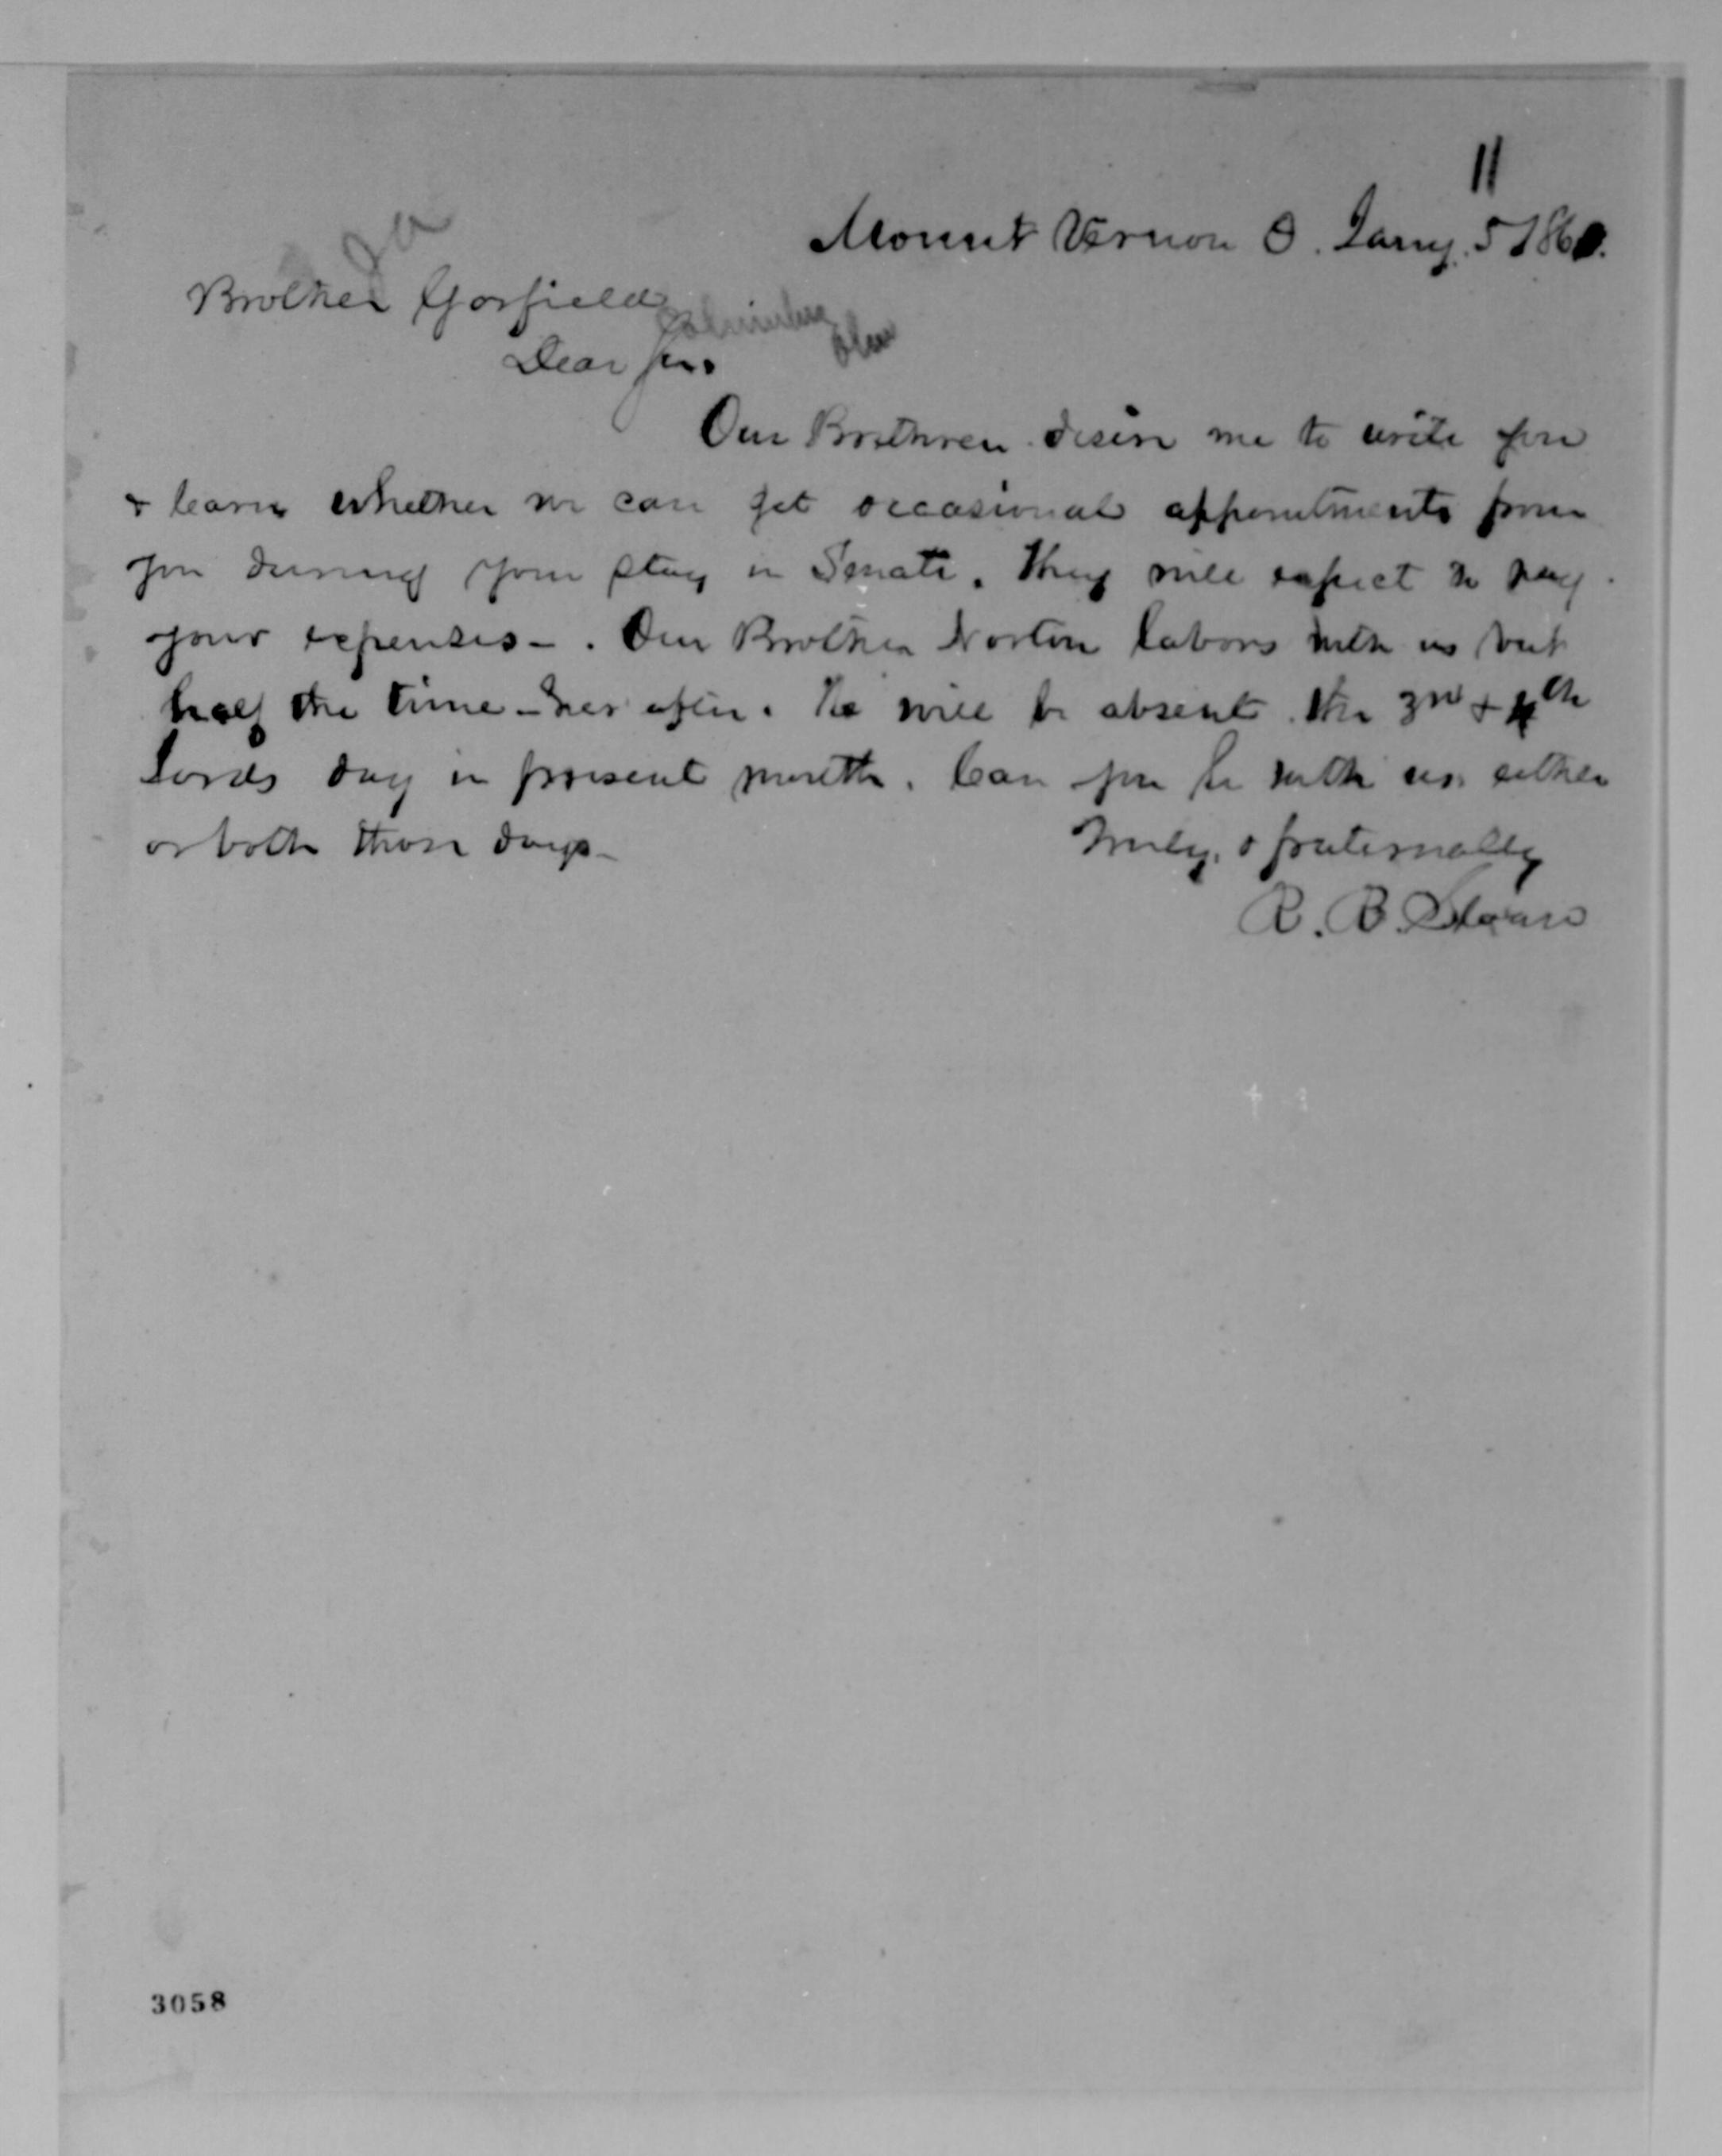 11
Mount Vernon O. Jany. 5 1860.
Brother Garfield
Columbus
Ohio
Dear Sir.
Our Brethren desire me to write you
& learn whether we can get occasional appointments from
you during your stay in Senate. They will expect to pay
your expenses - . Our Brother Norton labors with us but
half the time - hereafter. He will be absent the 3rd & 4th
Lords day in present month. Can you be with us either
or both those days -
Truly, & fraternally
R. B. Sloan
3058